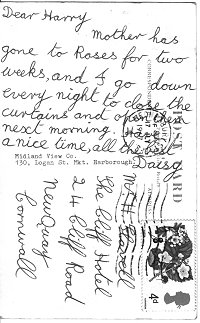 Dear Harry
Mother has
gone to Roses for two
weeks, and I go down
every night to close the
curtains and open them
next morning. Have
a nice time, all the best
Daisy
Midland View Co.
130, Logan St. Mkt. Harborough
POST CARD
The Cliff Hotel
24 Cliff Road
Newquay
Cornwall
4d